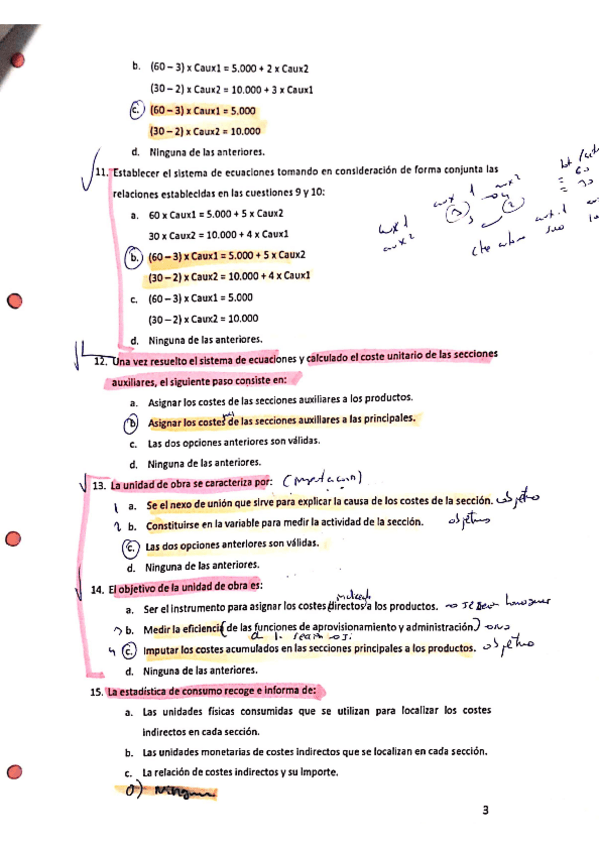 b. (60 – 3) x Caux1 = 5.000 + 2 x Caux2
(30 – 2) x Caux2 = 10.000 + 3 x Caux1
c. (60 – 3) x Caux1 = 5.000
(30 – 2) x Caux2 = 10.000
d. Ninguna de las anteriores.
11. Establecer el sistema de ecuaciones tomando en consideración de forma conjunta las
relaciones establecidas en las cuestiones 9 y 10:
aux 1 aux 2
60
30
a. 60 x Caux1 = 5.000 + 5 x Caux2
aux 1
aux 2
30 x Caux2 = 10.000 + 4 x Caux1
b. (60 – 3) x Caux1 = 5.000 + 5 x Caux2
(30 – 2) x Caux2 = 10.000 + 4 x Caux1
c. (60 – 3) x Caux1 = 5.000
(30 – 2) x Caux2 = 10.000
d. Ninguna de las anteriores.
12. Una vez resuelto el sistema de ecuaciones y calculado el coste unitario de las secciones
auxiliares, el siguiente paso consiste en:
a. Asignar los costes de las secciones auxiliares a los productos.
b. Asignar los costes de las secciones auxiliares a las principales.
c. Las dos opciones anteriores son válidas.
d. Ninguna de las anteriores.
13. La unidad de obra se caracteriza por:
1 a. Se el nexo de unión que sirve para explicar la causa de los costes de la sección. objetivo
2 b. Constituirse en la variable para medir la actividad de la sección. objetivo
c. Las dos opciones anteriores son válidas.
d. Ninguna de las anteriores.
14. El objetivo de la unidad de obra es:
a. Ser el instrumento para asignar los costes directos a los productos.
b. Medir la eficiencia de las funciones de aprovisionamiento y administración.
c. Imputar los costes acumulados en las secciones principales a los productos. objetivo
d. Ninguna de las anteriores.
15. La estadística de consumo recoge e informa de:
a. Las unidades físicas consumidas que se utilizan para localizar los costes
indirectos en cada sección.
b. Las unidades monetarias de costes indirectos que se localizan en cada sección.
c. La relación de costes indirectos y su importe.
d) Ninguna
3